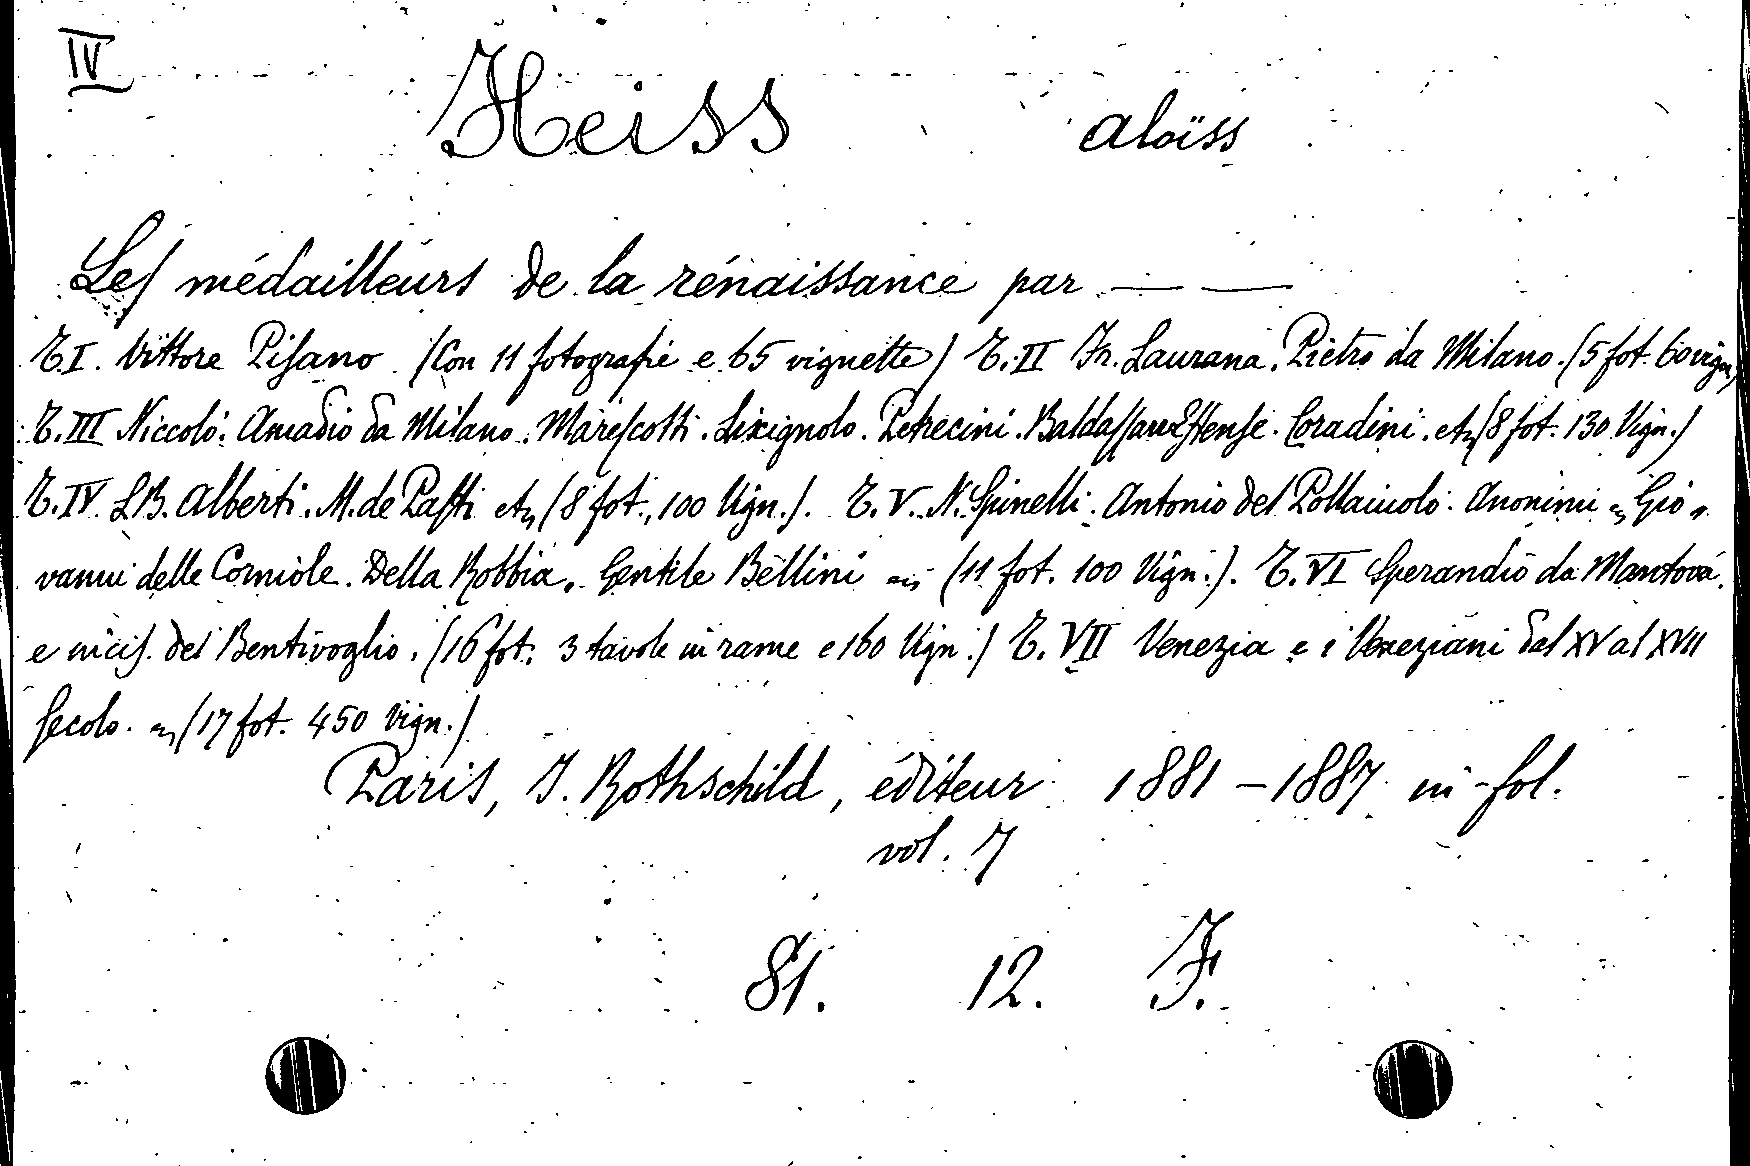 IV
Heiss Aloïss
Les médailleurs de la rénaissance par — —
T.I. Vittore Pisano (Con 11 fotografie e 65 vignette) T.II Fr. Laurana. Pietro da Milano. (5 fot. 60 vign.)
T.III Niccolò. Amadio da Milano. Marescotti. Lixignolo. Petrecini. Baldassare Estense. Coradini. etc (8 fot. 130 Vign.)
T.IV L.B. Alberti. M. de Pasti etc (8 fot., 100 Vign.). T.V. N. Spinelli. Antonio del Pollaiuolo. Anonimi Gio-
vanni delle Corniole. Della Robbia. Gentile Bellini (11 fot. 100 Vign.). T.VI Sperandio da Mantova.
e incis. dei Bentivoglio. (16 fot. 3 tavole in rame e 160 Vign.) T. VII Venezia e i Veneziani dal XV al XVII
secolo. (17 fot. 450 Vign.)
Paris, J. Rothschild, éditeur 1881-1887 in-fol.
vol. 7
81. 12. F.